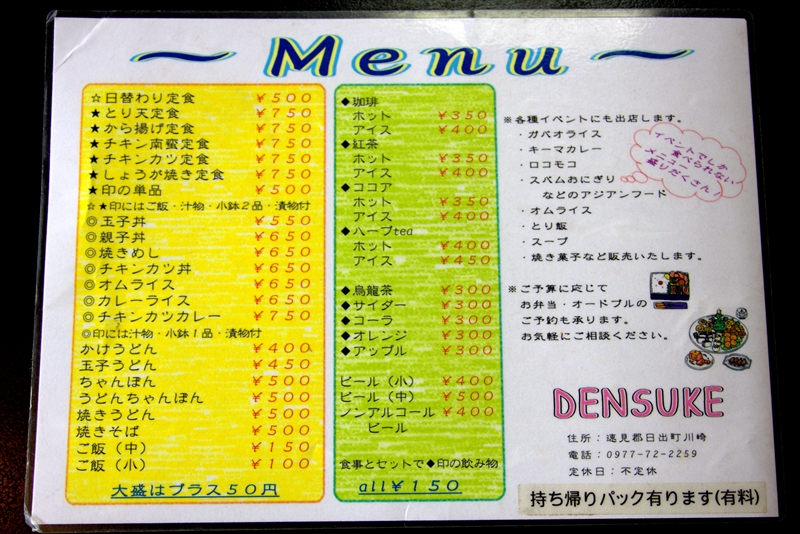 ～ Menu ～
☆日替わり定食 ￥500
★とり天定食 ￥750
★から揚げ定食 ￥750
★チキン南蛮定食 ￥750
★チキンカツ定食 ￥750
★しょうが焼き定食 ￥750
★印の単品 ￥500
☆★印にはご飯・汁物・小鉢２品・漬物付
◎玉子丼 ￥550
◎親子丼 ￥650
◎焼きめし ￥650
◎チキンカツ丼 ￥650
◎オムライス ￥650
◎カレーライス ￥650
◎チキンカツカレー ￥750
◎印には汁物・小鉢１品・漬物付
かけうどん ￥400
玉子うどん ￥450
ちゃんぽん ￥500
うどんちゃんぽん ￥500
焼きうどん ￥500
焼きそば ￥500
ご飯（中） ￥150
ご飯（小） ￥100
大盛はプラス50円
◆珈琲
ホット ￥350
アイス ￥400
◆紅茶
ホット ￥350
アイス ￥400
◆ココア
ホット ￥350
アイス ￥400
◆ハーブtea
ホット ￥400
アイス ￥450
◆烏龍茶 ￥300
◆サイダー ￥300
◆コーラ ￥300
◆オレンジ ￥300
◆アップル ￥300
ビール（小） ￥400
ビール（中） ￥500
ノンアルコール ￥400
ビール
食事とセットで◆印の飲み物
all￥150
※各種イベントにも出店します。
・ガパオライス
・キーマカレー
・ロコモコ
・スパムおにぎり
などのアジアンフード
・オムライス
・とり飯
・スープ
・焼き菓子など販売いたします。
イベントでしか
食べられない
メニュー
盛りだくさん！
※ご予算に応じて
お弁当・オードブルの
ご予約も承ります。
お気軽にご相談ください。
DENSUKE
住所：速見郡日出町川崎
電話：0977-72-2259
定休日：不定休
持ち帰りパック有ります(有料)